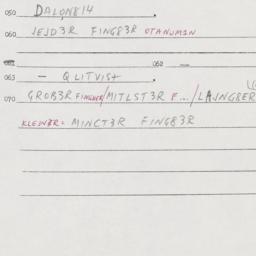 050 DALON814 .
060 JEJD3R FING83R OTANUM3N
062 —
063 — QLITVIS+ .
070 GROB3R FINGW3R/MITLST3R F.../LAJNG8ER
KLEIN3R: MINCT3R FING83R